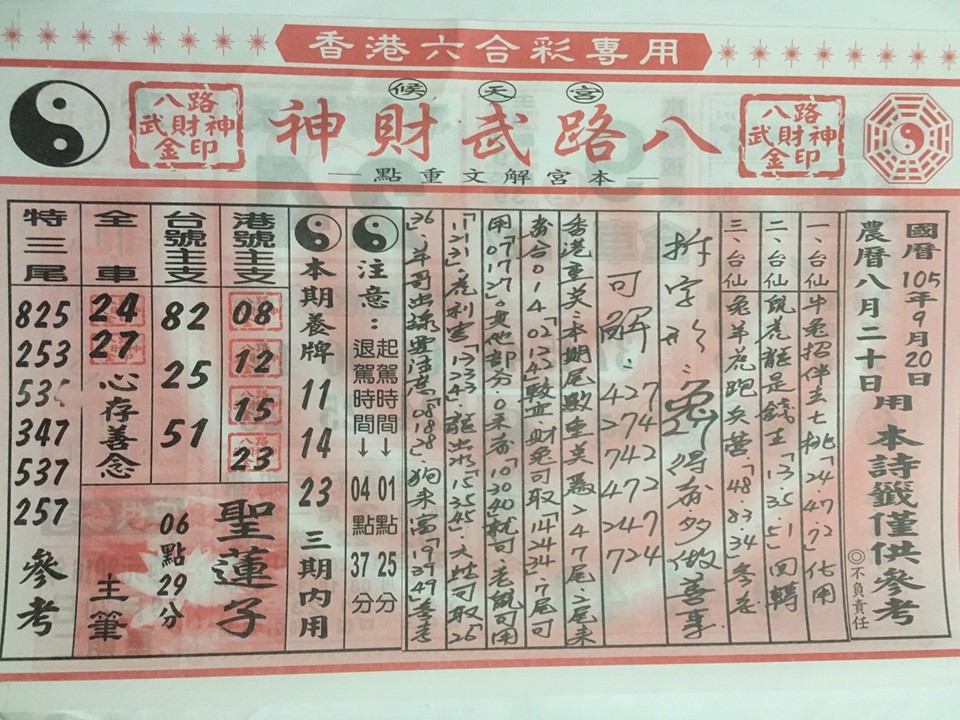 香港六合彩專用
候天宮
八路武財神
本宮解文重點
八路
武財神
金印
八路
武財神
金印
國曆105年9月20日
農曆八月二十日用
本詩籤僅供參考
◎不負責任
一、台仙 牛兔招伴去七桃「24.47.72」佔用
二、台仙 鼠虎龍是餓王「13.35.51」回轉
三、台仙 兔羊虎跑兵營「48 83.34」參考
拆字 兔 27 得 多做善事
可解：427 274 742 472 247 724
香港重英：本期尾數重英 247尾
合014「02 12 42」財兔可取「14 24 34」7尾可
用「07 17 27」其他部分 0 來「10 30 40」就可 老鼠可用
「11 21 31」虎 「13 23 43」龍出水「15 35 45」可取「26
36」羊哥出 「08 18 28」狗來 「19 39 49」參考
注意：
起駕時間→01點25分
退駕時間→04點37分
本期養牌 11 14 23 三期內用
港號主支
08
12
15
23
台號主支
82
25
51
全車
24
27
心存善念
聖蓮子
06點29分
主筆
特三尾
825
253
347
537
257
參考